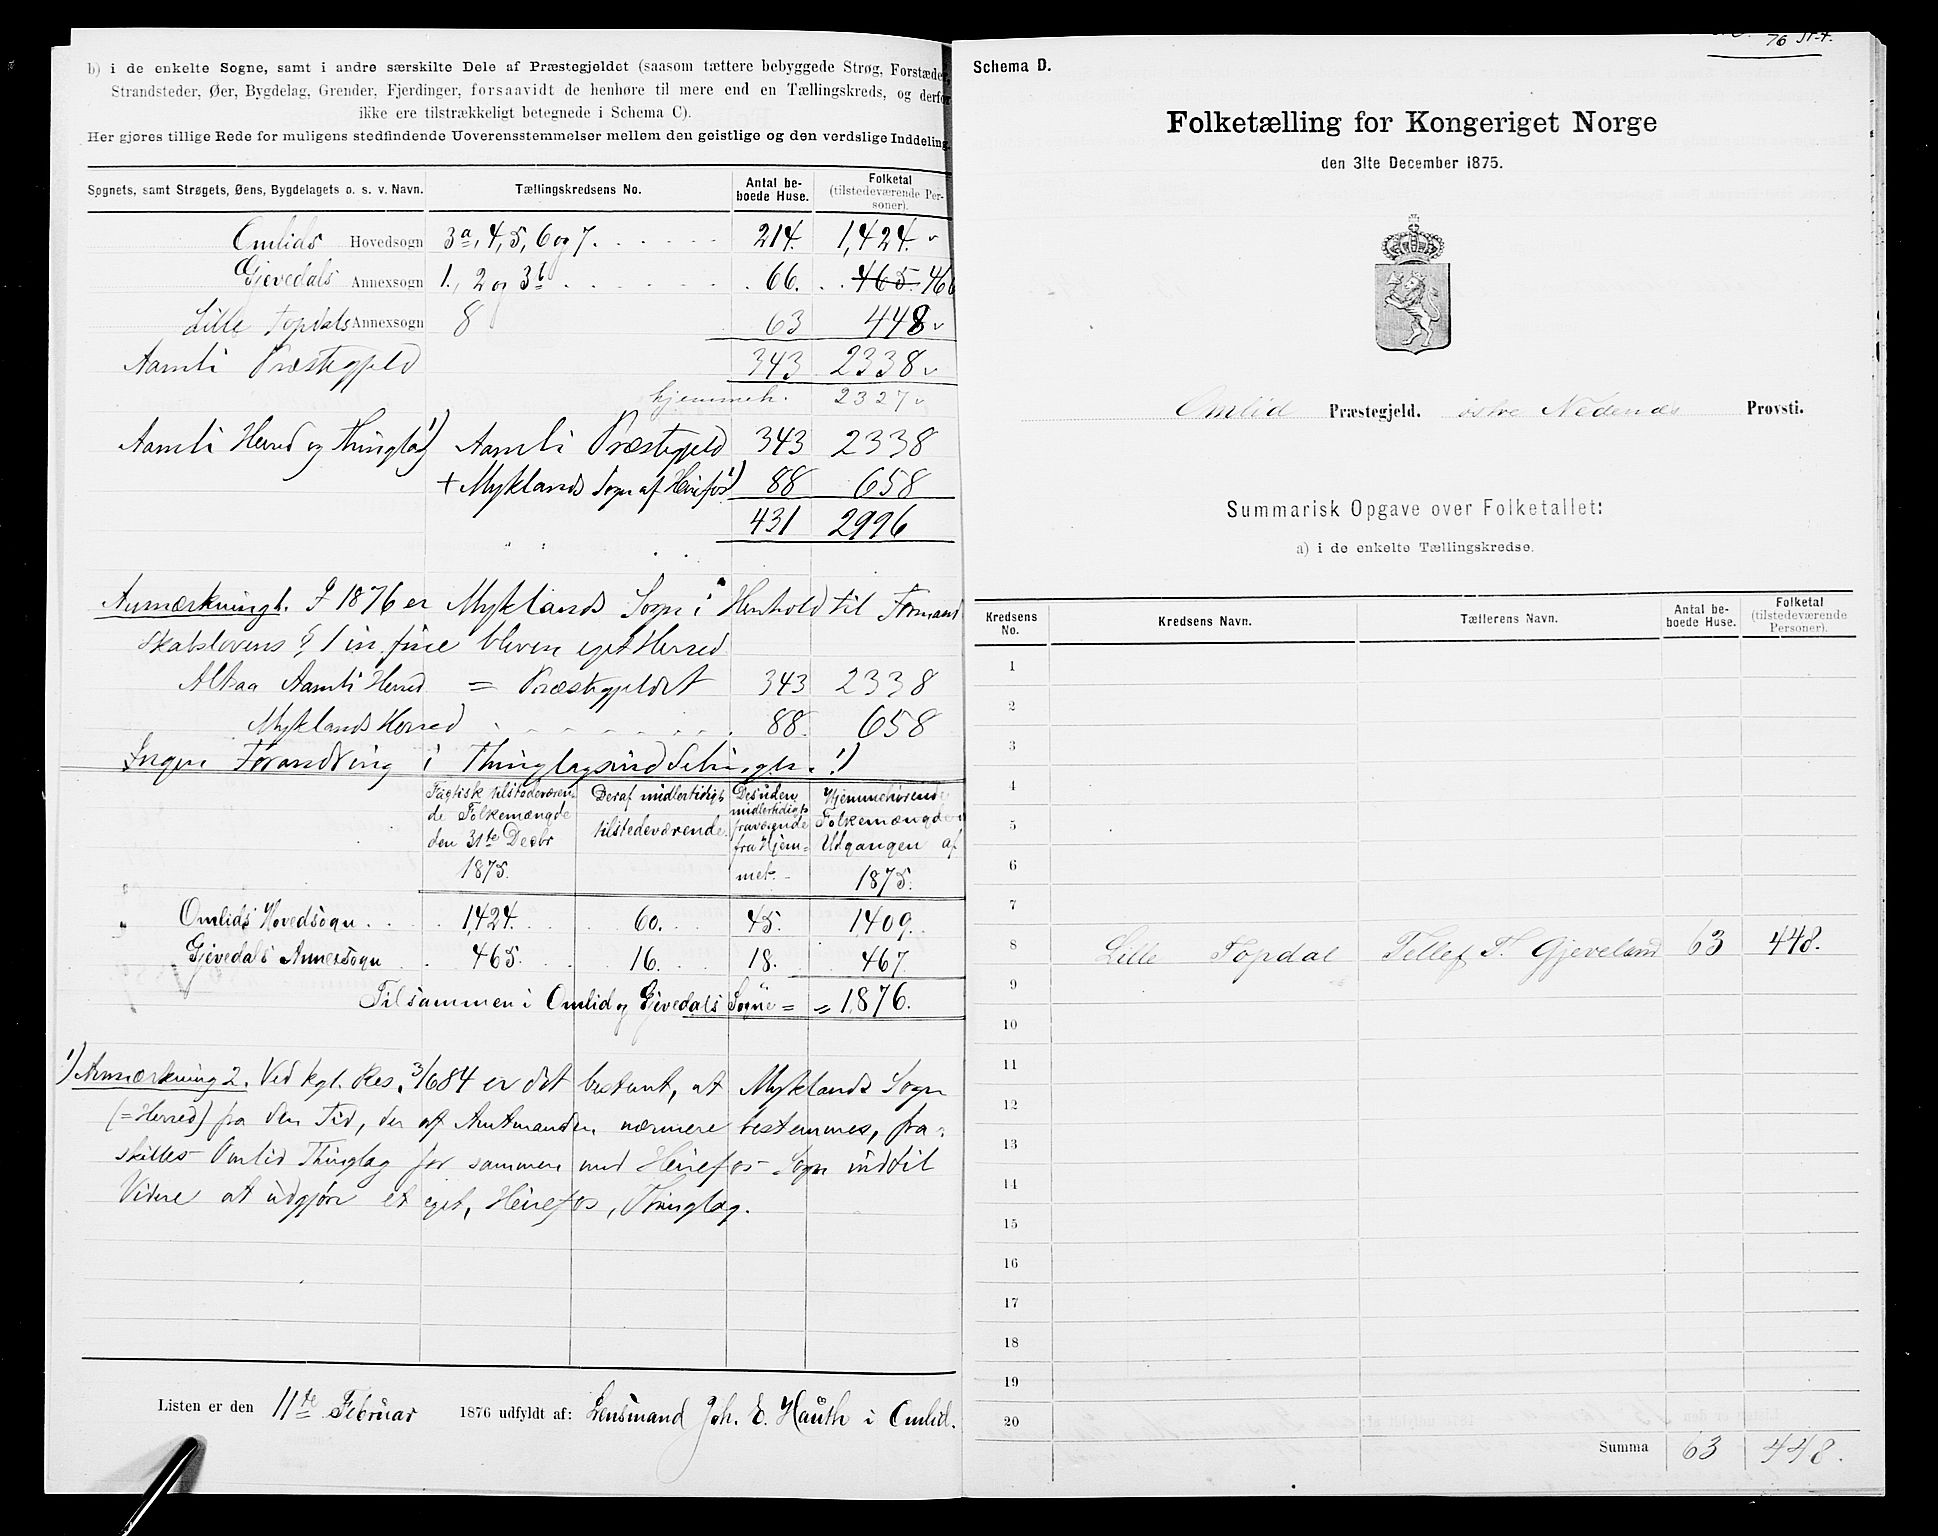 b) i de enkelte Sogne, samt i andre særskilte Dele af Præstegjeldet (saasom tættere bebyggede Strøg, Forstæder,
Strandsteder, Øer, Bygdelag, Grender, Fjerdinger, forsaavidt de henhøre til mere end en Tællingskreds, og derfor
ikke ere tilstrækkeligt betegnede i Schema C).
Her gjøres tillige Rede for muligens stedfindende Uoverensstemmelser mellem den geistlige og den verdslige Inddeling.
Sognets, samt Strøgets, Øens, Bygdelagets o. s. v. Navn. Tællingskredsens No. Antal beboede Huse. Folketal (tilstedeværende Personer).
Omlids Hovedsogn 3a, 4, 5, 6 og 7. 214. 1,424.
Gjevedals Annexsogn 1., 2 og 3b 66. 465. 466
Lille Topdals Annexsogn 8 63 448
Aamli Præstegjeld 343 2338
hjemmeh. 2327
Aamli Herred og Thinglag 1) Aamli Præstegjeld 343 2338
+ Myklands Sogn af Heirefos 1) 88 658
431 2996
Anmærkning 1. I 1876 er Myklands Sogn i Henhold til Formand
skabslovens § 1 in fine bleven eget Herred
Altsaa Aamli Herred = Præstegjeldet 343 2338
Myklands Herred 88. 658
Ingen Forandring i Thinglagsinddelingen. 1)
Fagtisk tilstedeværende Folkemængde den 31te Decbr 1875. Deraf midlertidigt tilstedeværende. Desuden midlertidigt fraværende fra Hjemmet. Hjemmehørende Folkemængde Udgangen af 1875.
Omlids Hovedsogn 1,424. 60. 45. 1,409.
Gjevedals Annexsogn 465. 16. 18. 467
Tilsammen i Omlid og Gjevedals Sogne = = 1,876.
1) Anmærkning 2. Ved kgl. Res. 3/6 84 er det bestemt, at Myklands Sogn
(= Herred) fra den Tid, der af Amtmanden nærmere bestemmes, fra-
skilles Omlid Thinglag for sammen med Heirefos Sogn indtil
Videre at udgjøre et eget, Heirefos, Thinglag.
Listen er den 11te Februar 1876 udfyldt af: Lensmand Joh. E. Hauth i Omlid.
76 St.
Schema D.
Folketælling for Kongeriget Norge
den 31te December 1875.
Omlid Præstegjeld. östre Nedenæs Provsti.
Summarisk Opgave over Folketallet:
a) i de enkelte Tællingskredse.
Kredsens No. Kredsens Navn. Tællerens Navn. Antal beboede Huse. Folketal (tilstedeværende Personer).
1
2
3
4
5
6
7
8 Lille Topdal Tellef T. Gjeveland 63 448.
9
10
11
12
13
14
15
16
17
18
19
20
Summa 63 448.